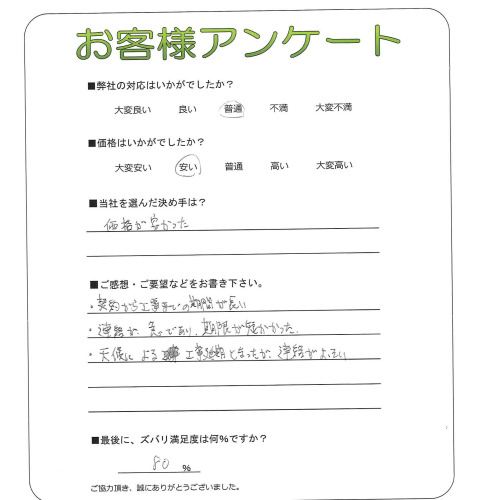 お客様アンケート
■弊社の対応はいかがでしたか？
大変良い 良い 普通 不満 大変不満
■価格はいかがでしたか？
大変安い 安い 普通 高い 大変高い
■当社を選んだ決め手は？
価格が安かった
■ご感想・ご要望などをお書き下さい。
・契約から工事までの期間が長い
・連絡が急であり、期限が短かかった。
・天候による工事延期となったが、連絡が
■最後に、ズバリ満足度は何%ですか？
80 %
ご協力頂き、誠にありがとうございました。